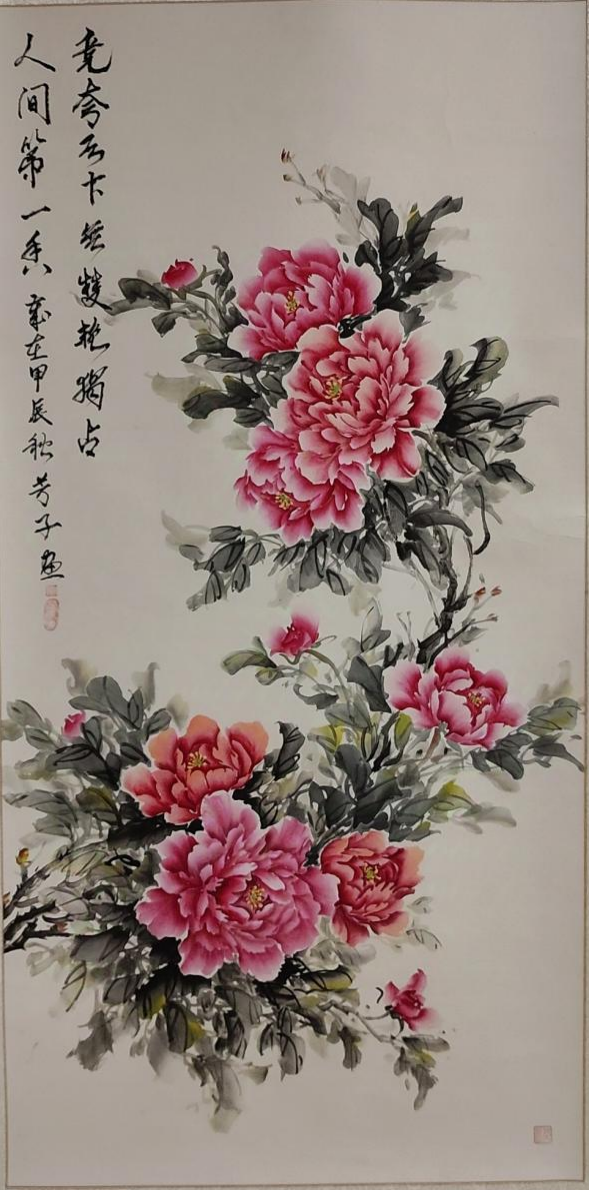 竞夸天下無雙艳獨占
人间第一香 歲在甲辰秋 芳子画